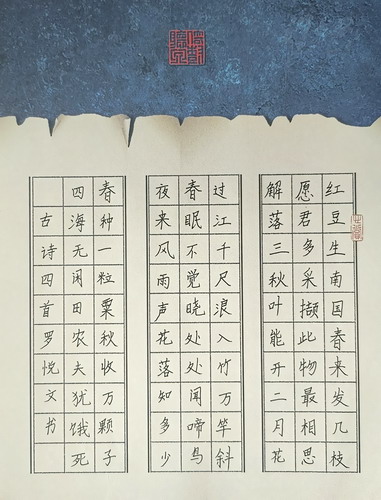 红豆生南国春来发几枝
愿君多采撷此物最相思
解落三秋叶能开二月花
过江千尺浪入竹万竿斜
春眠不觉晓处处闻啼鸟
夜来风雨声花落知多少
春种一粒粟秋收万颗子
四海无闲田农夫犹饿死
古诗四首罗悦文书